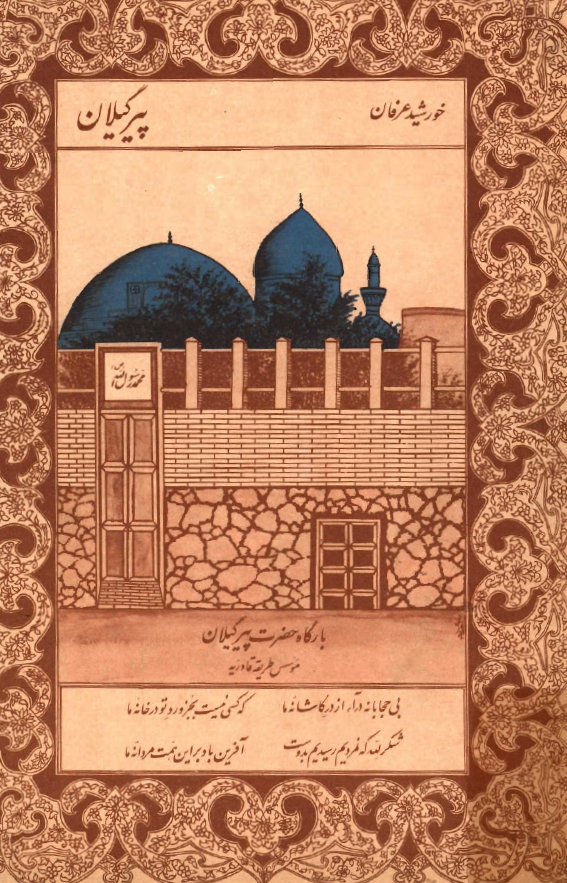 خورشید عرفان
پیر گیلان
محمد رسول الله
بارگاه حضرت پیر گیلان
موسس طریقه قادریه
بی حجابانه درآ، از در کاشانه ما
که کسی نیست بجز ورد تو در خانه ما
شکر لله که نمردیم رسیدیم بدوست
آفرین باد بر این همت مردانه ما